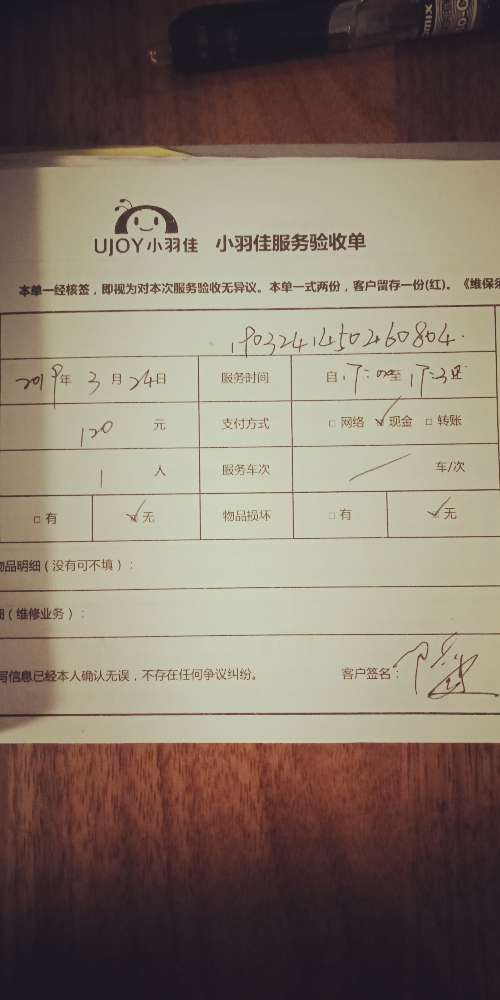 UJOY小羽佳 小羽佳服务验收单
本单一经核签，即视为对本次服务验收无异议。本单一式两份，客户留存一份(红)。《维保须
1903241450260804
2019年 3月 24日 服务时间 自 17:00至 17:3
120 元 支付方式 □ 网络 ☑ 现金 □ 转账
1 人 服务车次 / 车/次
□ 有 ☑ 无 物品损坏 □ 有 ☑ 无
物品明细（没有可不填）：
（维修业务）：
写信息已经本人确认无误，不存在任何争议纠纷。 客户签名：